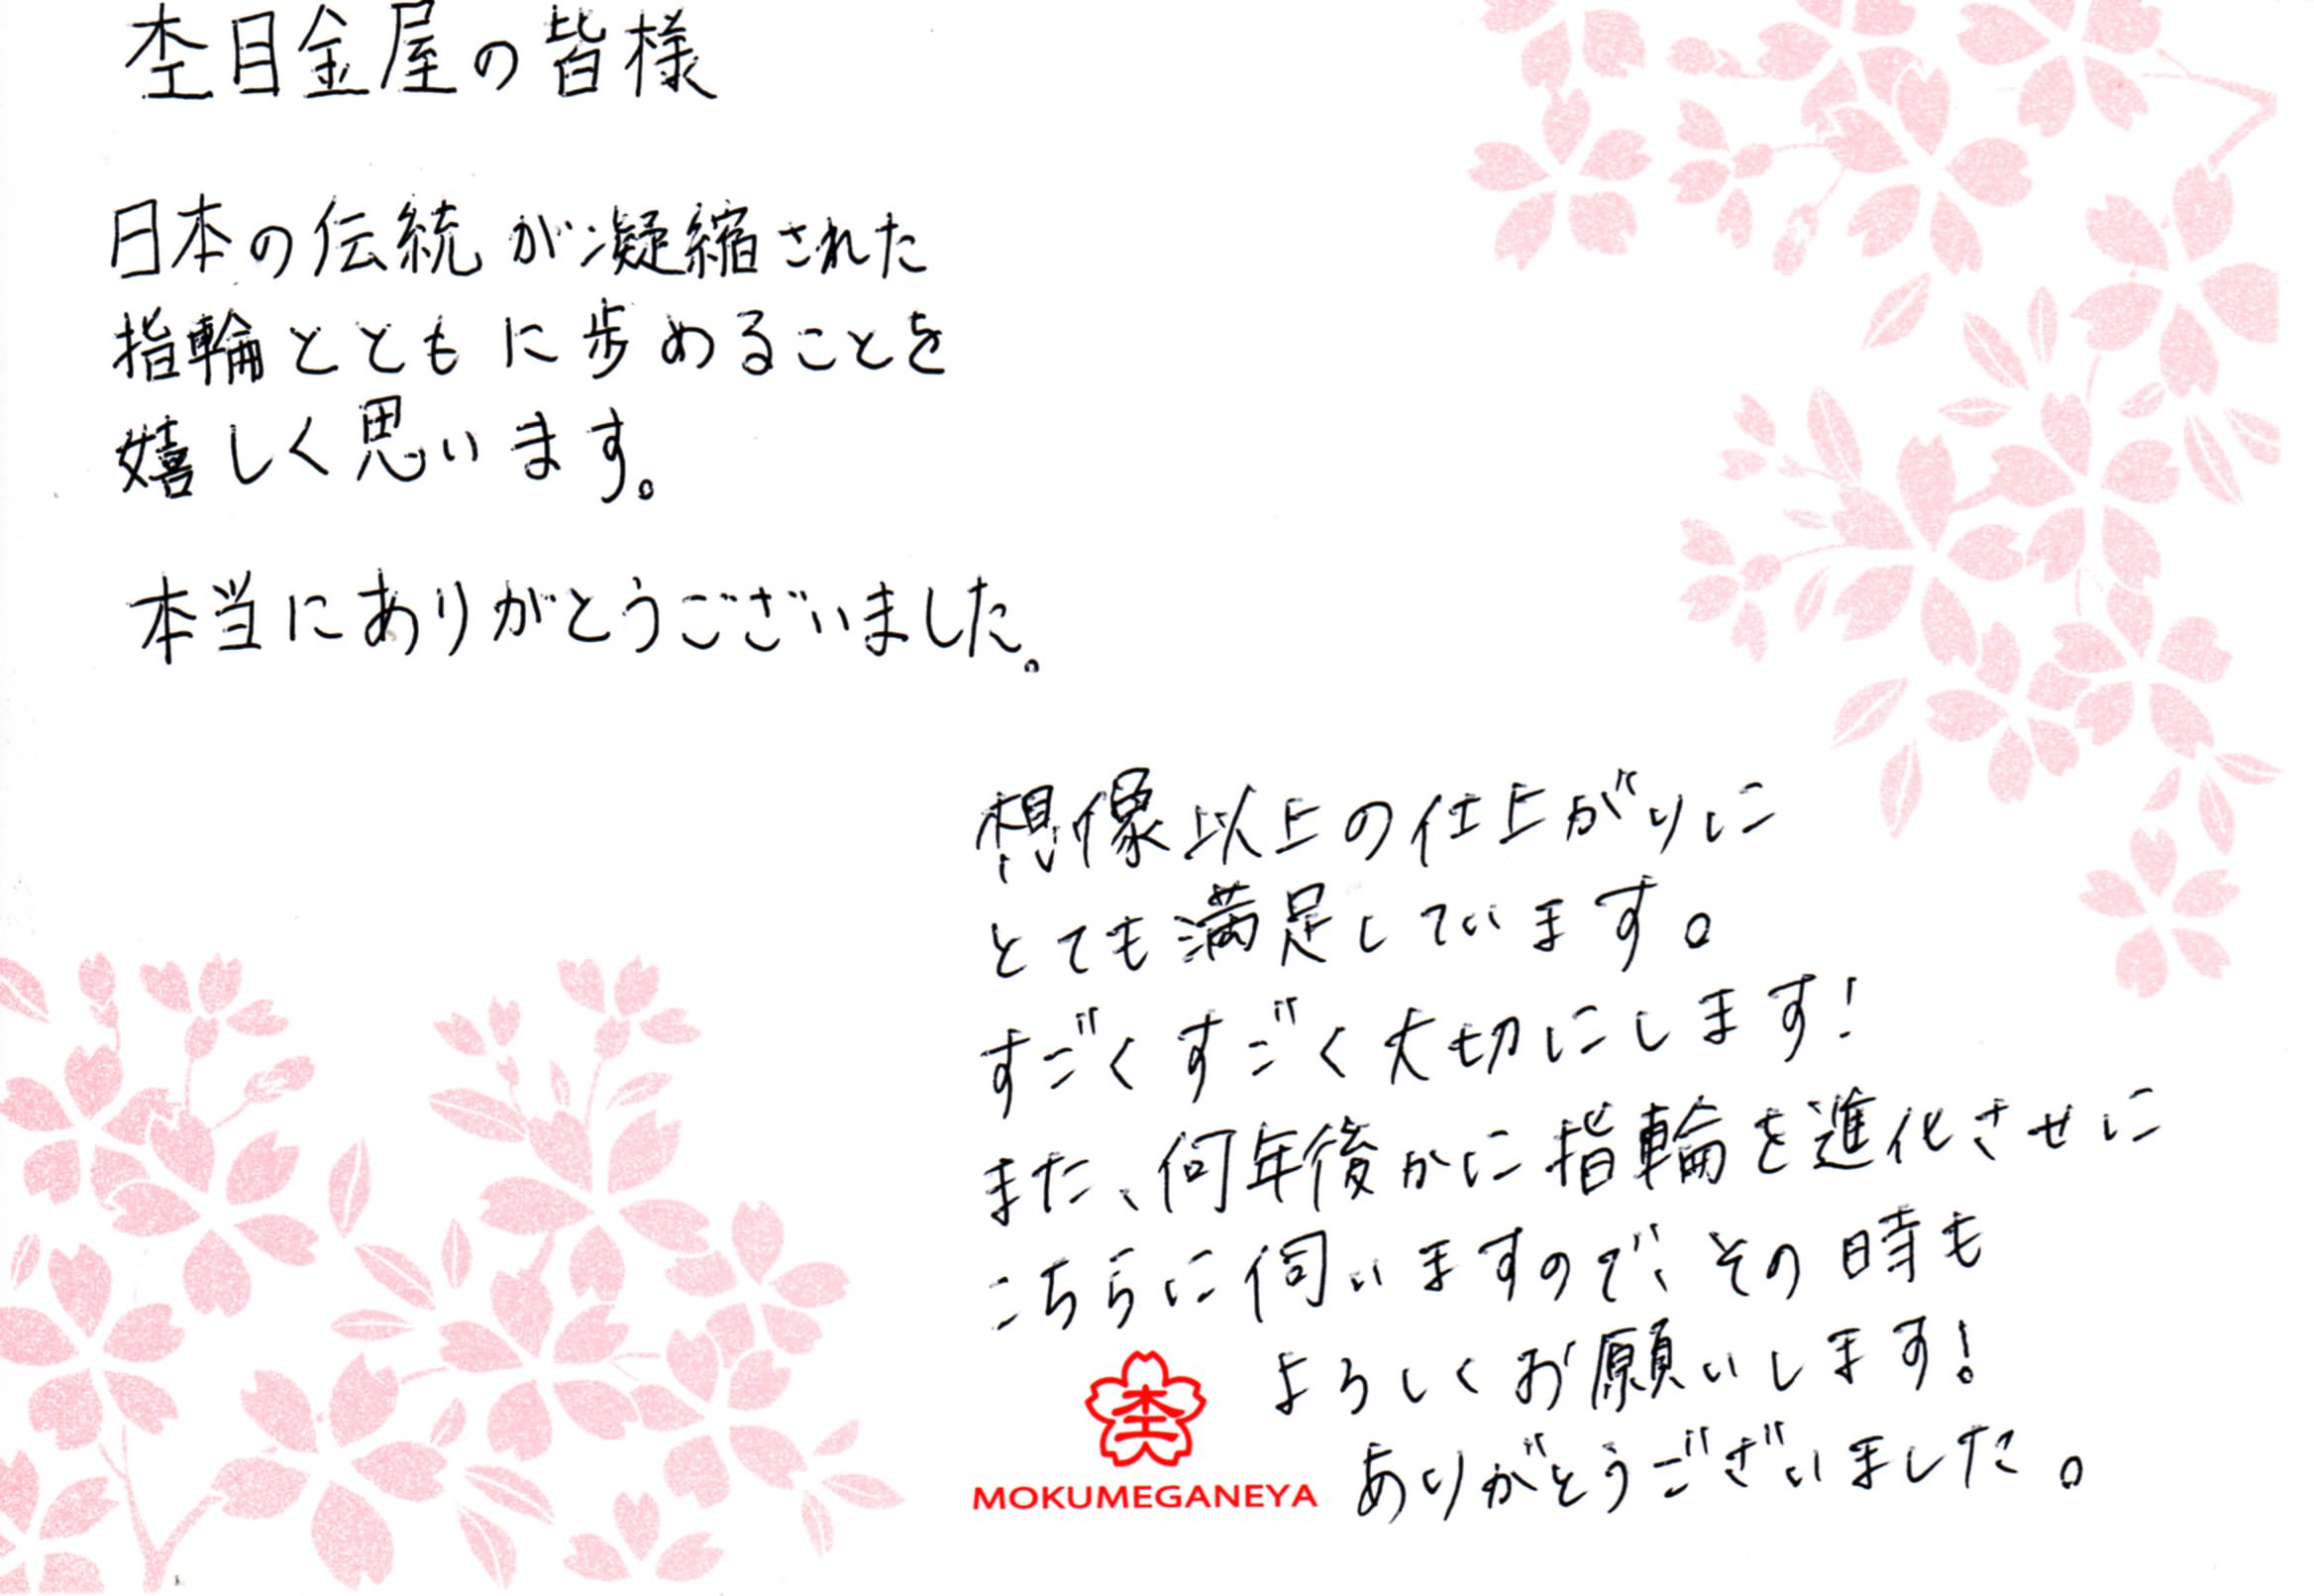 杢目金屋の皆様
日本の伝統が凝縮された
指輪とともに歩めることを
嬉しく思います。
本当にありがとうございました。
想像以上の仕上がりに
とても満足しています。
すごくすごく大切にします!
また、何年後かに指輪を進化させに
こちらに伺いますので、その時も
よろしくお願いします!
ありがとうございました。
杢
MOKUMEGANEYA